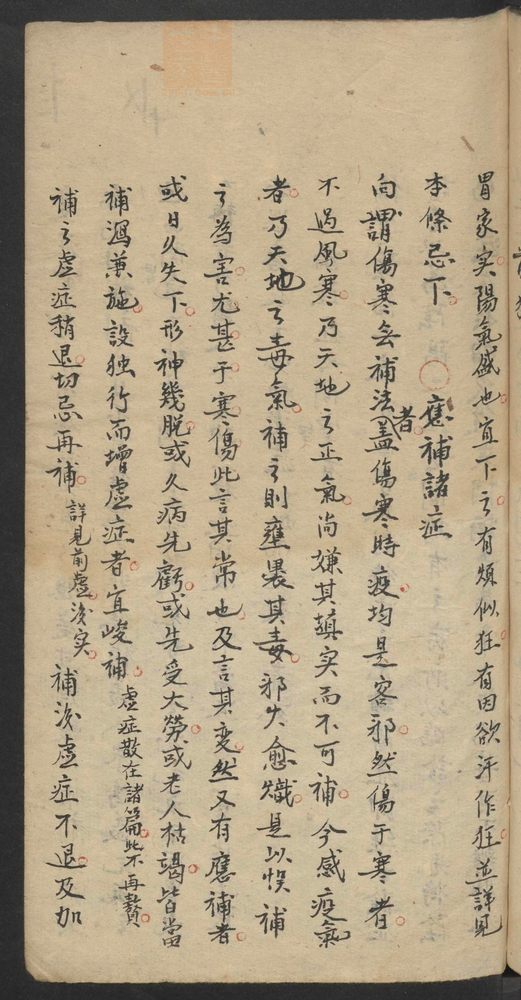 胃家实陽氣盛也宜下之有類似狂有因欲汗作狂並詳見
本條忌下 應補諸症
向謂傷寒無補法者盖傷寒時疫均是客邪然傷于寒者
不過風寒乃天地之正氣尚嫌其填实而不可補今感疫氣
者乃天地之毒氣補之則壅裹其毒邪火愈熾是以悮補
之為害尤甚于寒傷此言其常也及言其变然又有應補者
或日久失下形神幾脫或久病先虧或先受大勞或老人枯竭皆當
補瀉兼施設独行而增虚症者宜峻補虚症散在諸篇此不再贅
補之虚症稍退切忌再補詳見前虚後实補後虚症不退及加